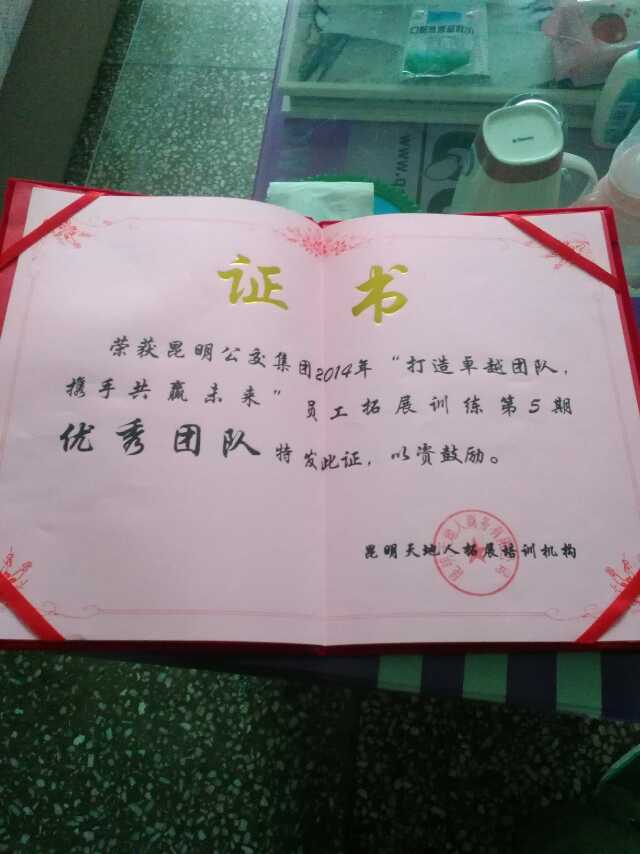 证书
荣获昆明公交集团2014年“打造卓越团队，
携手共赢未来”员工拓展训练第5期
优秀团队特发此证，以资鼓励。
昆明天地人拓展培训机构
www.